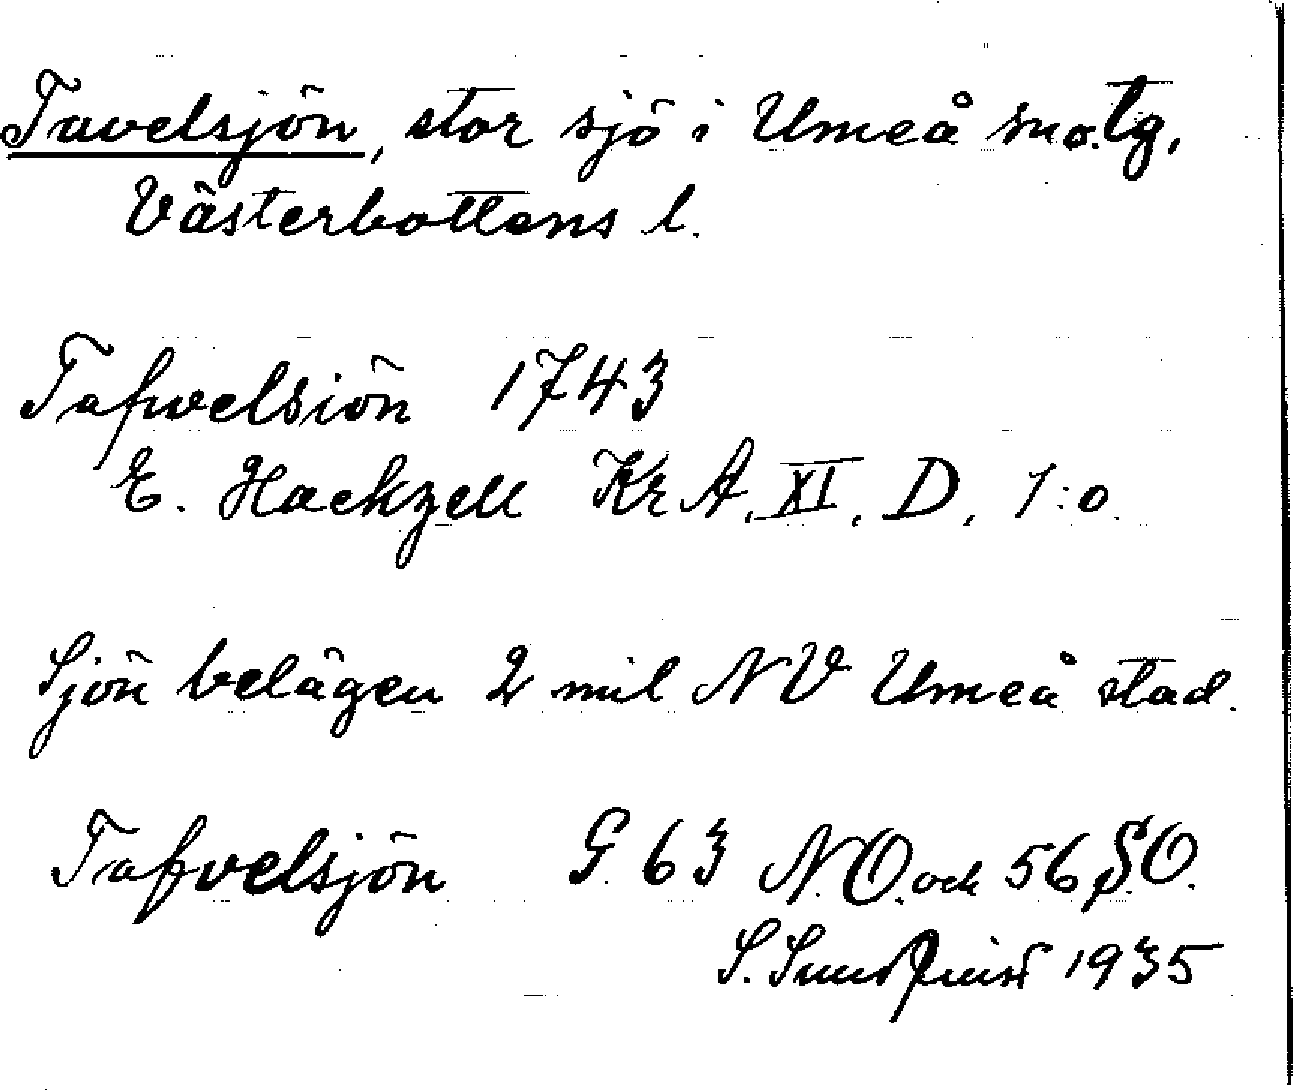 Tavelsjön, stor sjö i Umeå sn o. tg,
Västerbottens l.
Tafwelsiön 1743
E. Hackzell KrA, XI, D, 1:o.
Sjön belägen 2 mil NV Umeå stad.
Tafvelsjön G. 63 N.O. och 56 S.O.
S. Sundquist 1935